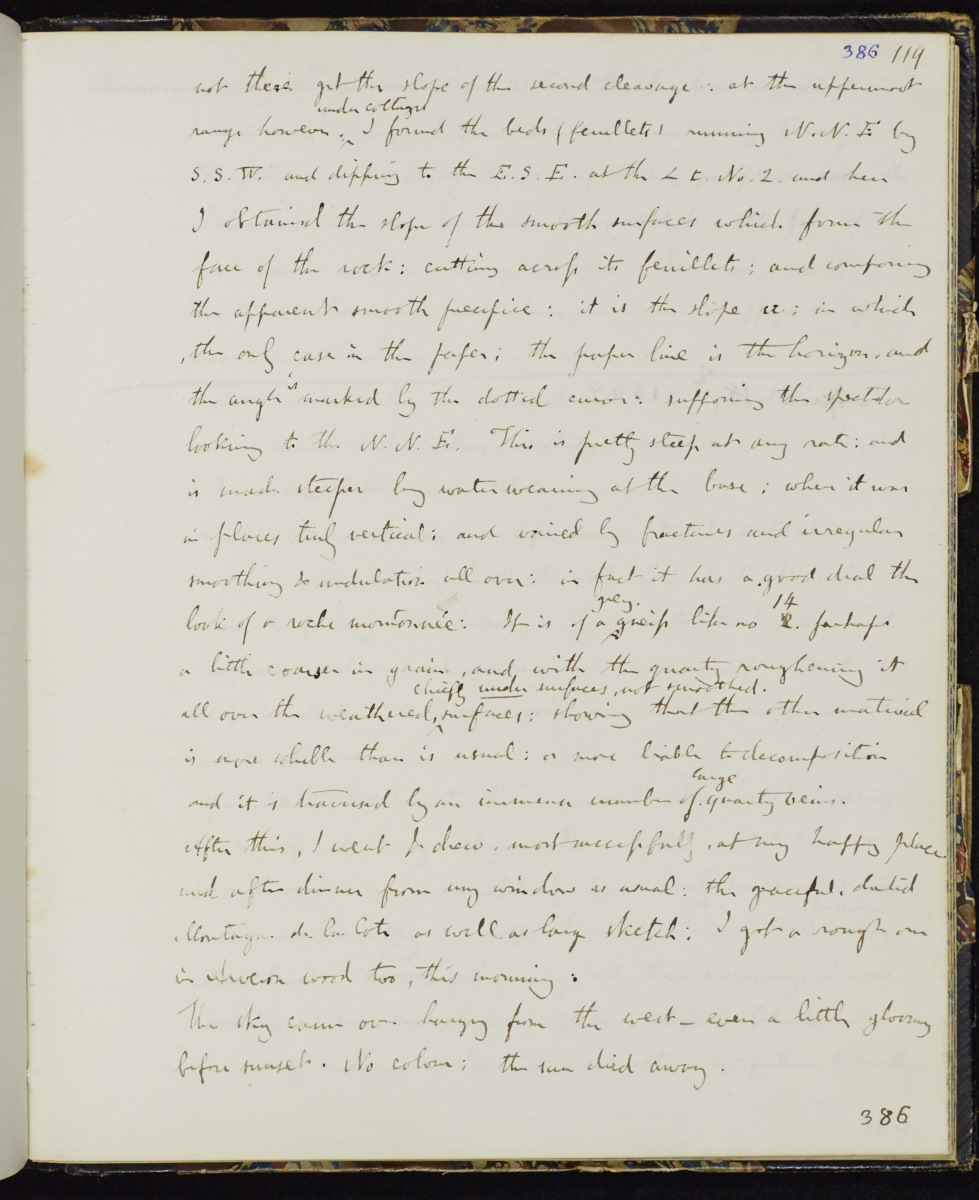 386 119
not there get the slope of the second cleavage: at the uppermost
under cottages
range however, I found the beds (feuillets) running N.N.E by
S.S.W. and dipping to the E.S.E. at the L t. No. 2. and here
I obtained the slope of the smooth surfaces which form the
face of the rock: cutting across its feuillets; and composing
the apparent smooth precipice: it is the slope ; in which
, the only case in the paper; the paper line is the horizon, and
the angle is marked by the dotted curve: supposing the spectator
looking to the N.N.E. This is pretty steep at any rate: and
is made steeper by water wearing at the base; where it was
in places truly vertical; and varied by fractures and irregular
smoothing & undulation all over: in fact it has a good deal the
look of a roche moutonnée: It is of a grey gneiss like no 14. perhaps
a little coarser in grain, and with the quartz roughening it
chiefly under surfaces, not smoothed.
all over the weathered surfaces; showing that the other material
is more soluble than is usual: or more liable to decomposition
and it is traversed by an immense number of large quartz veins.
After this, I went & drew, most successfully, at my happy place
and after dinner from my window as usual: the graceful,
Montagne de la Cote as well as large sketch; I got a rough one
in Arveron wood too, this morning:
The sky came over hazy from the west - even a little gloomy
before sunset. No colour; the sun died away.
386